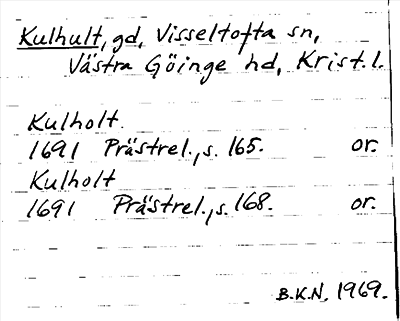 Kulhult, gd, Visseltofta sn,
Västra Göinge hd, Krist. l.
Kulholt.
1691 Prästrel., s. 165. or.
Kulholt
1691 Prästrel., s. 168. or.
B.K.N. 1969.